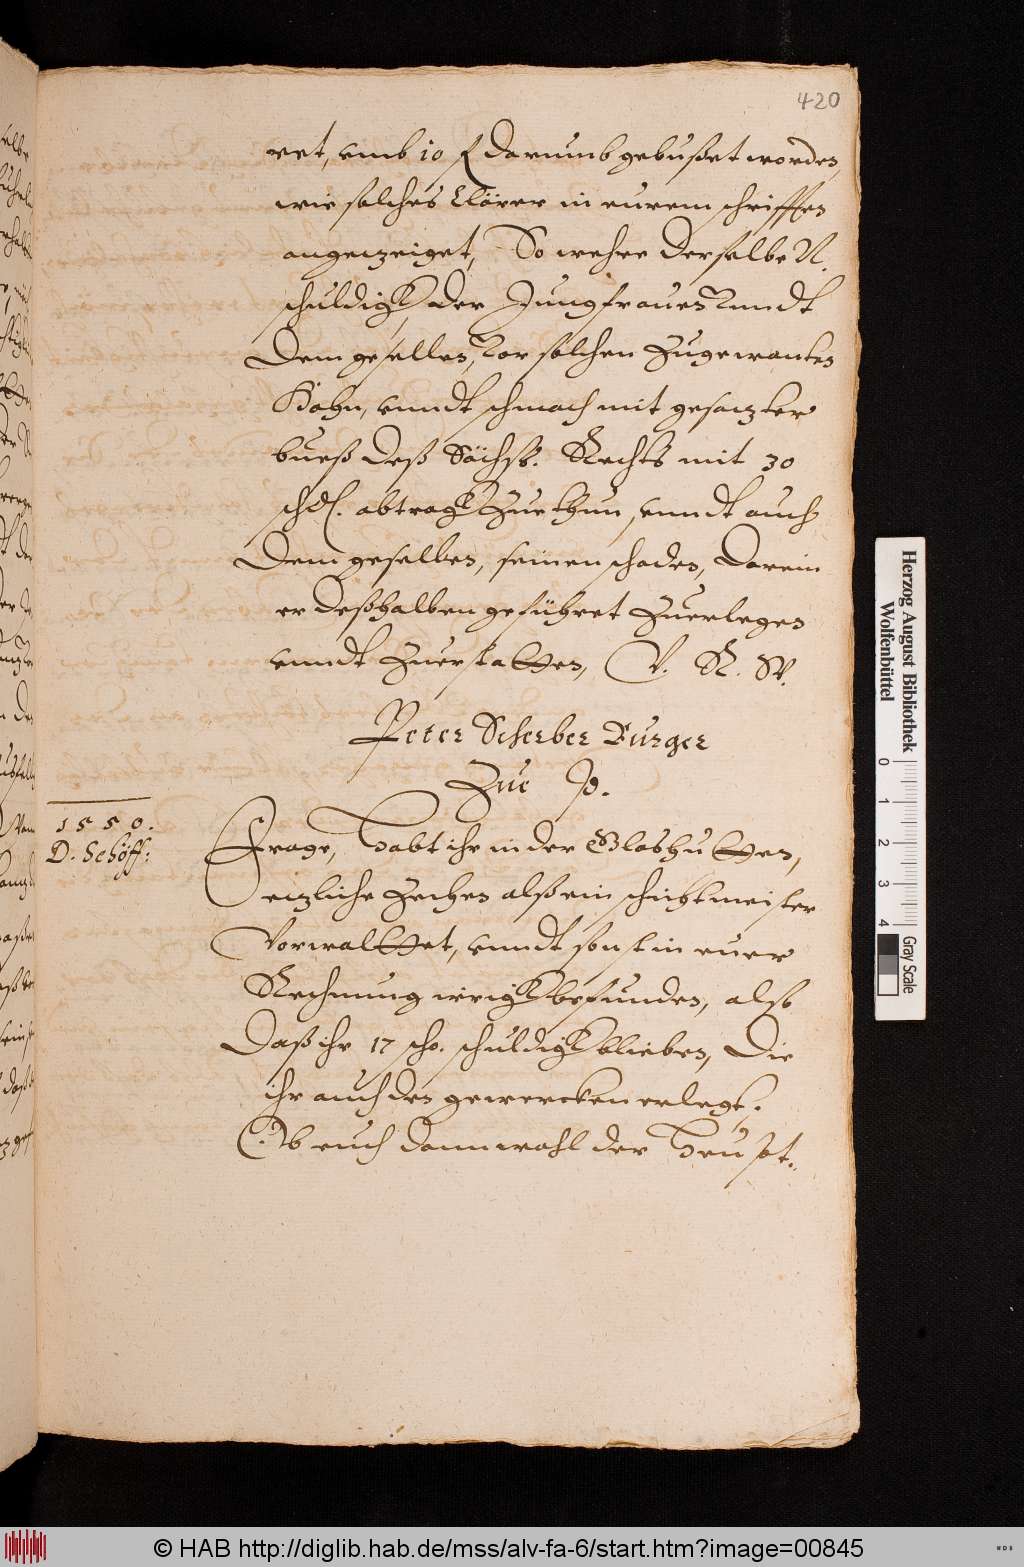 420
ret, umb 10 f darumb gebußet worden,
wie solches klärer in eurem schrifften
angezeiget, So wehre derselbe N.
schuldigk der Jungfrauen unndt
dem gesellen, vor solchen zugewanten
Hohn, unndt schmach mit gesaczter
bueß deß Sächß. Rechts mit 30
ßchl. abtragk zue thun, unndt auch
dem gesellen, seinen schaden, darein
er deßhalben geführet zuerlegen
unndt zuerstatten, V. R. W.
Peter Scherber Burger
zue
1550.
D. Schöff:
Frage, Habt ihr in der Glashutten,
eczliche zechen alß ein schichtmeister
vorwalttet, unndt sonst in euer
Rechnung irrigk befunden, alß
daß ihr 17 scho. schuldigk blieben, die
ihr auch den gewercken erlegt.
Ob euch dann wohl der
Herzog August Bibliothek
Wolfenbüttel
0 1 2 3 4
Gray Scale
© HAB http://diglib.hab.de/mss/alv-fa-6/start.htm?image=00845